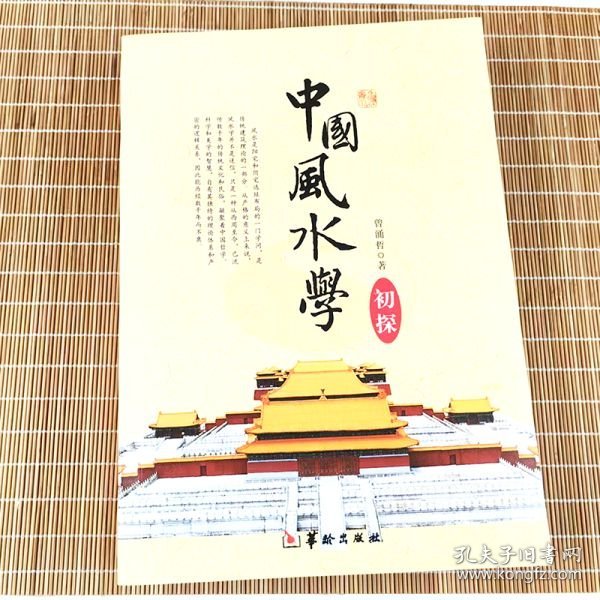 中國風水學
初探
曾涌哲○著
风水是阳宅和阴宅选址布局的一门学问，是
传统建筑理论的一部分。从严格的意义上来说，
风水学并不是迷信，只是一种从西周至今，已流
传数千年的传统文化和民俗，凝聚着中国哲学、
科学和美学的智慧，自有其独特的理论体系和严
密的逻辑关系，因此能历经数千年而不衰
華龄出版社
孔夫子旧书网
www.kongfz.com